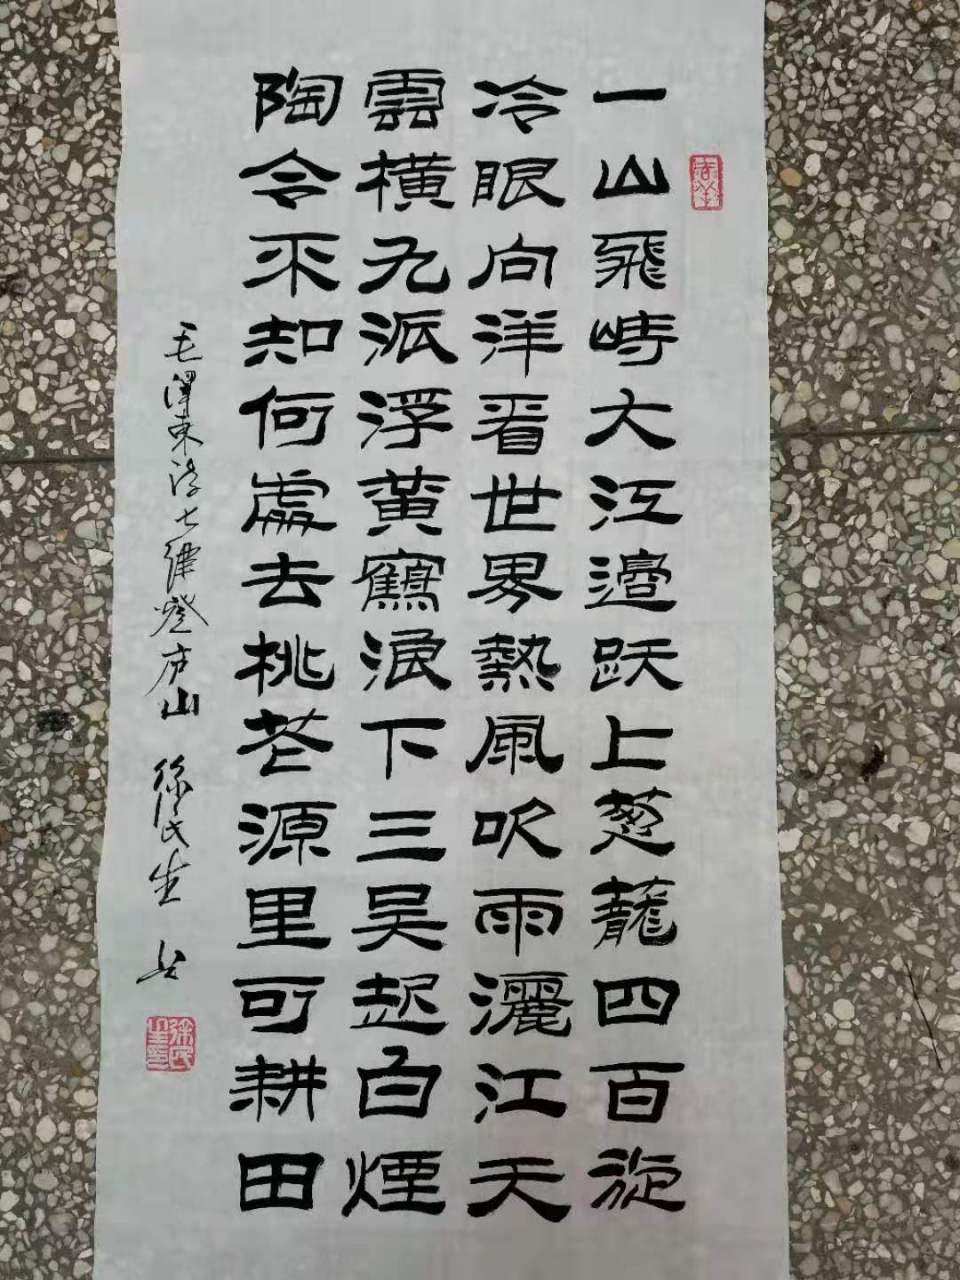 一山飛峙大江邉跃上葱蘢四百旋
冷眼向洋看世界熱風吹雨灑江天
雲橫九派浮黄鶴浪下三吴起白煙
陶令不知何處去桃花源里可耕田
毛澤東诗七律登庐山 徐民生 书